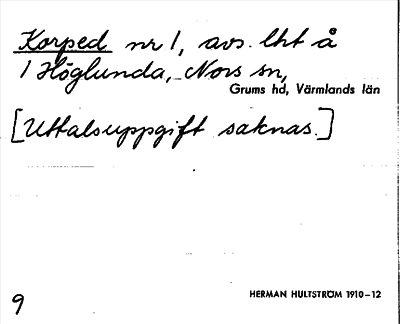 Korped nr 1, avs. lht å
1 Höglunda, Nors sn,
Grums hd, Värmlands län
[Uttalsuppgift saknas.]
HERMAN HULTSTRÖM 1910-12
9